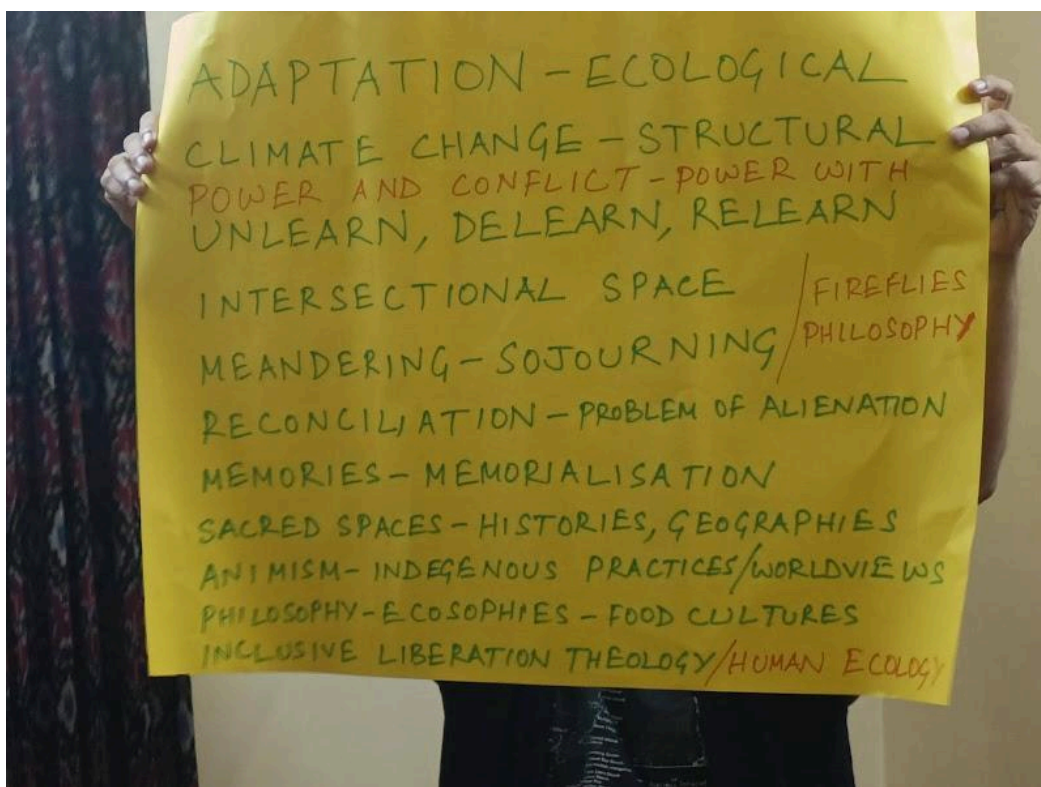 ADAPTATION - ECOLOGICAL
CLIMATE CHANGE - STRUCTURAL
POWER AND CONFLICT - POWER WITH
UNLEARN, DELEARN, RELEARN
INTERSECTIONAL SPACE
/FIREFLIES
PHILOSOPHY
MEANDERING - SOJOURNING
RECONCILIATION - PROBLEM OF ALIENATION
MEMORIES - MEMORIALISATION
SACRED SPACES - HISTORIES, GEOGRAPHIES
ANIMISM - INDEGENOUS PRACTICES/WORLDVIEWS
PHILOSOPHY - ECOSOPHIES - FOOD CULTURES
INCLUSIVE LIBERATION THEOLOGY/HUMAN ECOLOGY